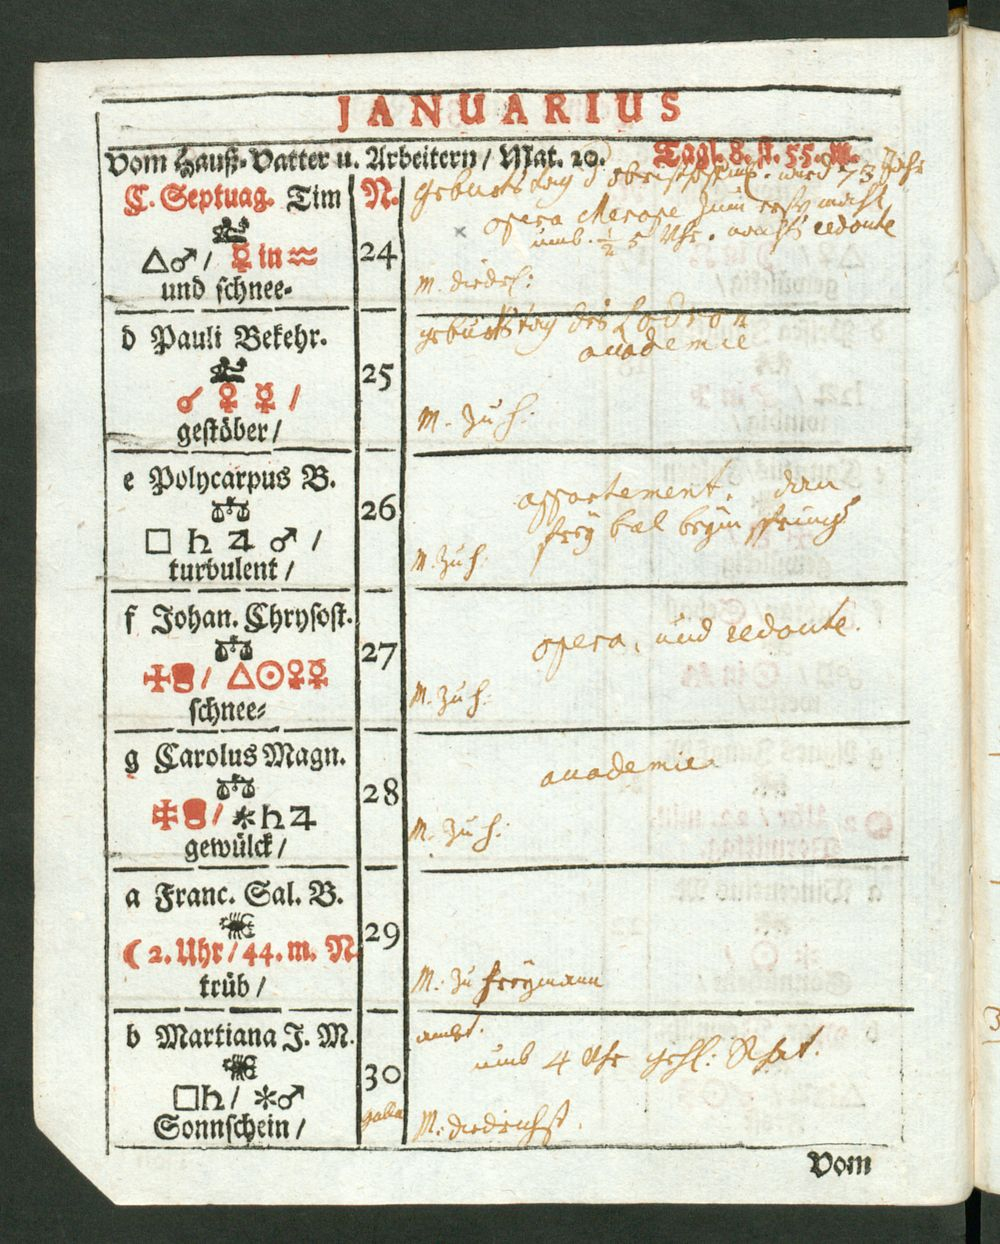 JANUARIUS
Vom Hauß-Vatter u. Arbeitern / Mat. 20. Tagl. 8. st. 55. M.
C. Septuag. Tim N.
△♂ / ☿ in ♒
und schnee-
24
geburts tag 73 Jahr
opera Merope zum
umb. ½ 5 Uhr. nachts redoute
M. diedrf:
d Pauli Bekehr.
☌ ♀ ☿ /
gestöber /
25
geburts tag des Lodron
academie
M. zu h:
e Polycarpus B.
□ ♄ ♃ ♂ /
turbulent /
26
appartement. dan
frey bal
M. zu h:
f Johan. Chrysost.
/ △☉♀☿
schnee-
27
opera, und redoute.
M. zu h:
g Carolus Magn.
/ ⚹♄♃
gewülck /
28
academie.
M. zu h:
a Franc. Sal. B.
☾ 2. Uhr / 44. m. N.
trüb /
29
M. zu freymann
b Martiana J. M.
□♄ / ⚹♂
Sonnschein /
30
galla
ambt.
umb 4 Uhr gehl: Rhat.
M. diedrichst.
Vom